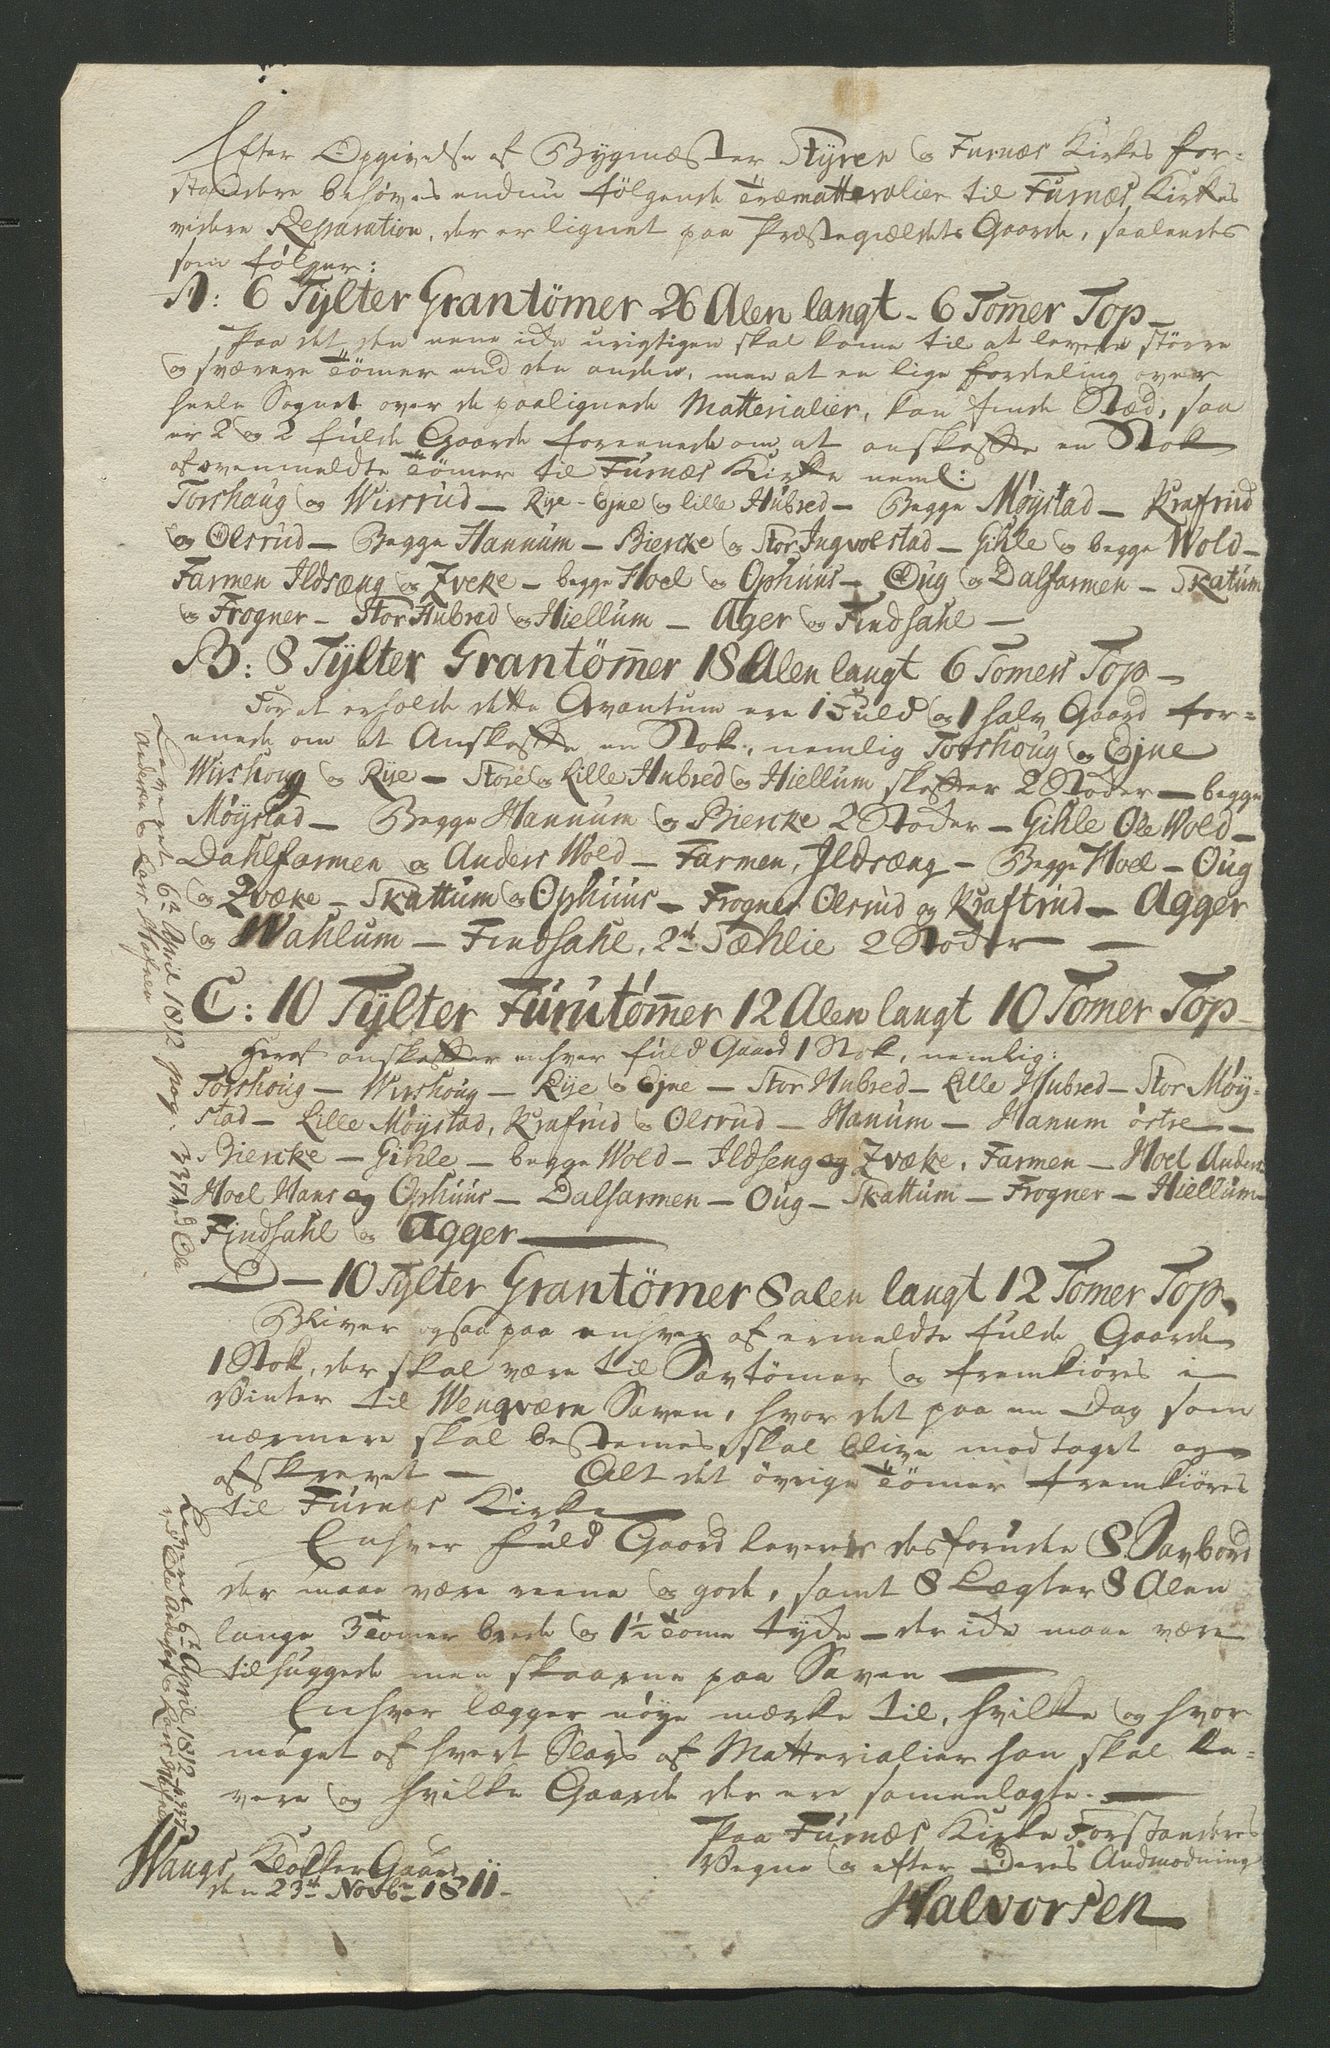 Efter Opgivelse af Bygmæster Styren og Furnæs Kirkes for-
standere behøves endnu følgende Træmatterialier til Furnæs Kirkes
videre Reparation, der er lignet paa Præstegieldets Gaarde, saaledes
som følger:
A: 6 Tylter Grantömer 26 Alen langt - 6 Tomer Top -
Paa det den eene ikke urigtigen skal kome til at levere større
og sværere Tömer end den anden, men at en lige fordeling over
heele Sognet over de paalignede Matterialier, kan finde Stæd, saa
er 2 og 2 fulde Gaarde foreenede om at anskaffe en Stok
af ovenmeldte Tömer til Furnæs Kirke neml:
Torshaug og Wisrud - Rye - Ejne og lille Hubred - Begge Møystad - Krafrud
og Olsrud - Begge Hannum - Biercke og Stor Ingvolstad - Gihle og begge Wold -
Farmen Ildsæng og Zveke - begge Hoel og Ophuus - Oug og Dalfarmen - Skatum
og Frogner - Stor Hubred og Hiellum - Ager og Findsahl -
B: 8 Tylter Grantömer 18 Alen langt 6 Tomers Top -
For at erholde dette Qvantum ere 1 Fuld og 1 halv Gaard for-
enede om at Anskaffe en Stok, nemlig Torshoug og Ejne
Wishoug og Rye - Store og Lille Hubred og Hiellum skaffer 2 Stoder - begge
Møystad - Begge Hannum og Biercke 2 Stoder - Gihle Ole Wold -
Dahlfarmen og Anders Wold - Farmen, Ildsæng - Begge Hoel - Oug
og Zvæke - Skattum og Ophuus - Frogner Olsrud og Kraftrud - Agger
og Wahlum - Findsahl, 2de Sæhlie 2 Stoder -
C: 10 Tylter Furutömer 12 Alen langt 10 Tomer Top
Heraf anskaffer enhver fuld Gaard 1 Stok, nemlig:
Torshoug - Wishoug - Rye og Ejne - Stor Hubred - Lille Hubred - Stor Møy-
stad - Lille Møystad, Krafrud og Olsrud - Hanum - Hanum østre -
Biercke - Gihle - begge Wold - Ildseng og Zvæke, Farmen - Hoel Anders
Hoel Hans og Ophuus - Dalfarmen - Oug - Skattum - Frogner - Hiellum -
Findsahl og Agger
D - 10 Tylter Grantömer 8 alen langt 12 Tomer Top.
Bliver ogsaa paa enhver af ermeldte fulde Gaarde
1 Stok, der skal være til Savtömer og fremkiøres i
Vinter til Wengværn Saven, hvor det paa en Dag som
nærmere skal bestemes, skal blive modtaget og
afskrevet - Alt det övrige Tömer fremkiøres
til Furnæs Kirke
Enhver fuld Gaard leverer desforuden 8 Savbord
der maae være reene og gode, samt 8 Lægter 8 Alen
lange 3 Tomer brede og 1½ Tome tyke - de ikke maae være
tilhuggede men skaarne paa Saven -
Enhver lægger nøye mærke til, hvilke og hvor
meget af hvert Slags af Matterialier han skal le-
vere og hvilke Gaarde der ere samenlagte. -
Paa Furnæs Kirke Forstanderes
Vegne og efter Deres Anmodning
Halvorsen
Wangs Klokker Gaard
den 23de Novbr 1811.
Leveret 6te April 1812 pag. 337 ved Ole
Andersen og Lars
Leveret 6te April 1812 p. 337
ved Ole Andersen og Lars